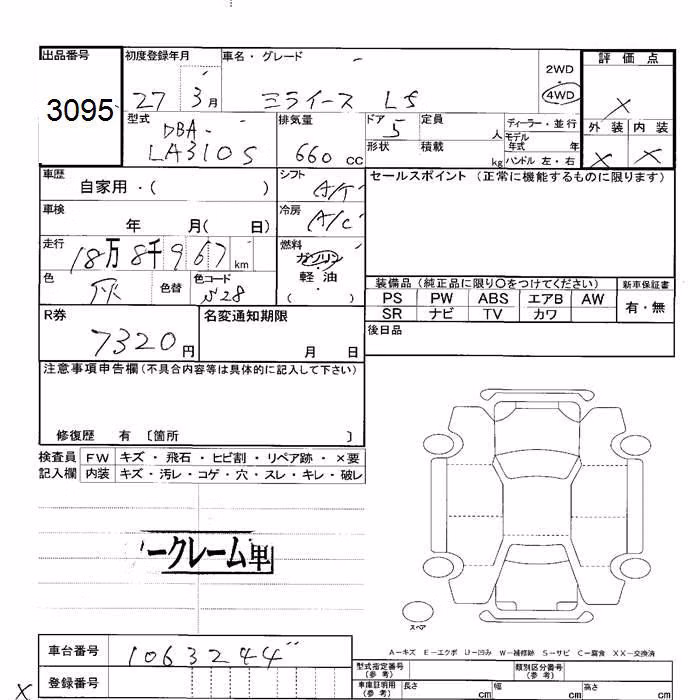 出品番号 初度登録年月 車名・グレード 2WD 評価点
3095 27 3月 ミライース LS 4WD X
型式 排気量 ドア 定員 ディーラー・並行 外装 内装
DBA- 5 人 モデル年式 年 X X
LA310S 660 cc 形状 積載 kg ハンドル 左・右
車歴 シフト セールスポイント (正常に機能するものに限ります)
自家用・( ) A/T
車検 冷房
年 月( 日) A/C
走行 燃料
18万8千967km ガソリン
色 色替 色コード 軽油
灰 S28 ( )
装備品 (純正品に限り○をつけてください) 新車保証書
R券 名変通知期限 PS PW ABS エアB AW 有・無
SR ナビ TV カワ
7320円 月 日 後日品
注意事項申告欄(不具合内容等は具体的に記入して下さい)
修復歴 有 〔箇所 〕
検査員 FW キズ・飛石・ヒビ割・リペア跡・×要
記入欄 内装 キズ・汚レ・コゲ・穴・スレ・キレ・破レ
ークレーム
スペア
A-キズ E-エクボ U-凹み W-補修跡 S-サビ C-腐食 XX-交換済
車台番号 1063244 型式指定番号(参考) 類別区分番号(参考)
X 登録番号 車庫証明用(参考) 長さ cm 幅 cm 高さ cm